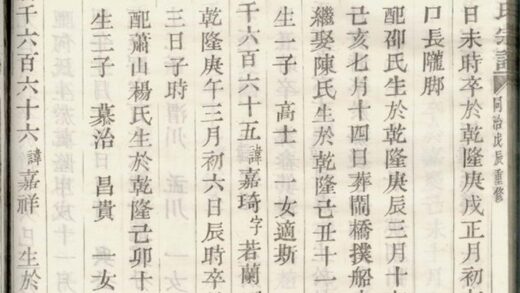 氏宗譜 同治戊辰重修
日未時卒於乾隆庚戌正月初
口長隴脚
配邵氏生於乾隆庚辰三月十
己亥七月十四日葬閘橋撲船
繼娶陳氏生於乾隆己丑十一
生一子 高士 一女適斯
千六百六十五 諱嘉琦 字若蘭
乾隆庚午三月初六日辰時卒
三日子時
配蕭山楊氏生於乾隆己卯十
生二子 慕治 昌貴 一女
千六百六十六 諱嘉祥 生於